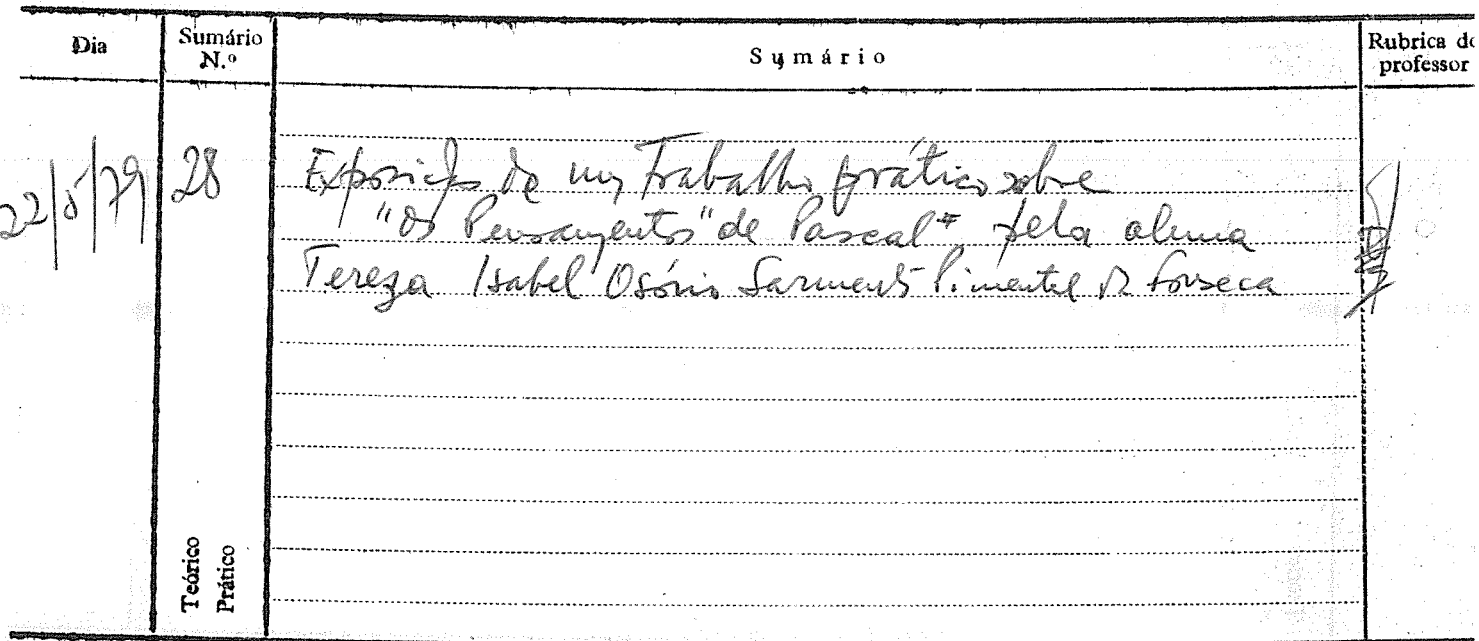 Dia
Sumário N.º
Sumário
Rubrica do professor
22/5/79
28
Exposição de um trabalho prático sobre
"Os Pensamentos" de Pascal" pela aluna
Tereza Isabel Osório Sarmento Pimentel da Fonseca
Teórico
Prático